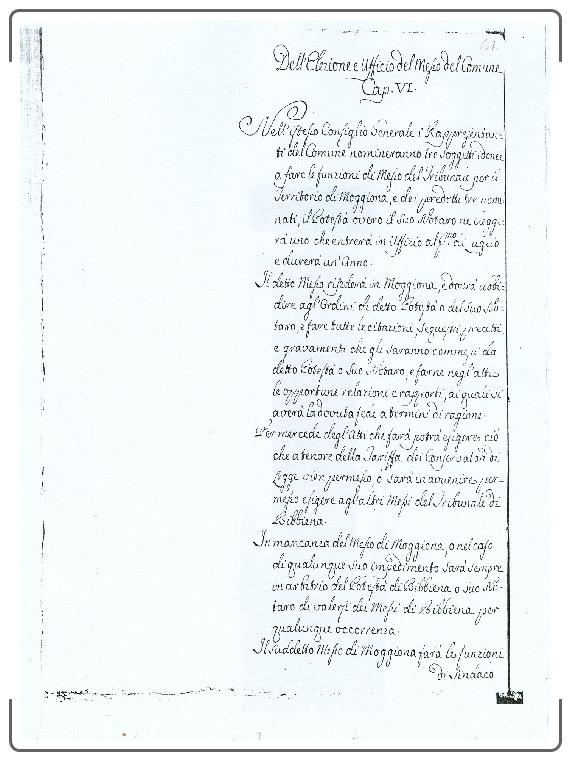 Dell'Elezione e Ufficio del Messo del Comune
Cap. VI.
Nell'istesso Consiglio Generale i Rappresentan-
ti del Comune nomineranno tre soggetti idonei
a fare le funzioni di Messo del Tribunale per il
Territorio di Moggiona, e dei predetti tre nomi-
nati, il Potestà overo il suo Notaro ne eleggе-
rà uno che entrerà in Uffizio al p.mo di Luglio
e durerà un'Anno.
Il detto Messo risederà in Moggiona, e dovrà ubi-
dire agl'Ordini di detto Potestà o del suo No-
taro, e fare tutte le citazioni, sequestri, precetti
e gravamenti che gli saranno commessi da
detto Potestà o suo Notaro, e farne negl'atti
le opportune relazioni e rapporti, ai quali si
averà la dovuta fede a termini di ragione.
Per mercede degl'Atti che farà potrà esigere ciò
che a tenore della Tariffa dei Conservatori di
Legge vien permesso o sarà in avvenire per-
messo esigere agl'altri Messi del Tribunale di
Bibbiena.
In mancanza del Messo di Moggiona, o nel caso
di qualunque suo impedimento sarà sempre
in arbitrio del Potestà di Bibbiena o suo No-
taro di valersi dei Messi di Bibbiena per
qualunque occorrenza.
Il suddetto Messo di Moggiona farà le funzioni
di Sindaco